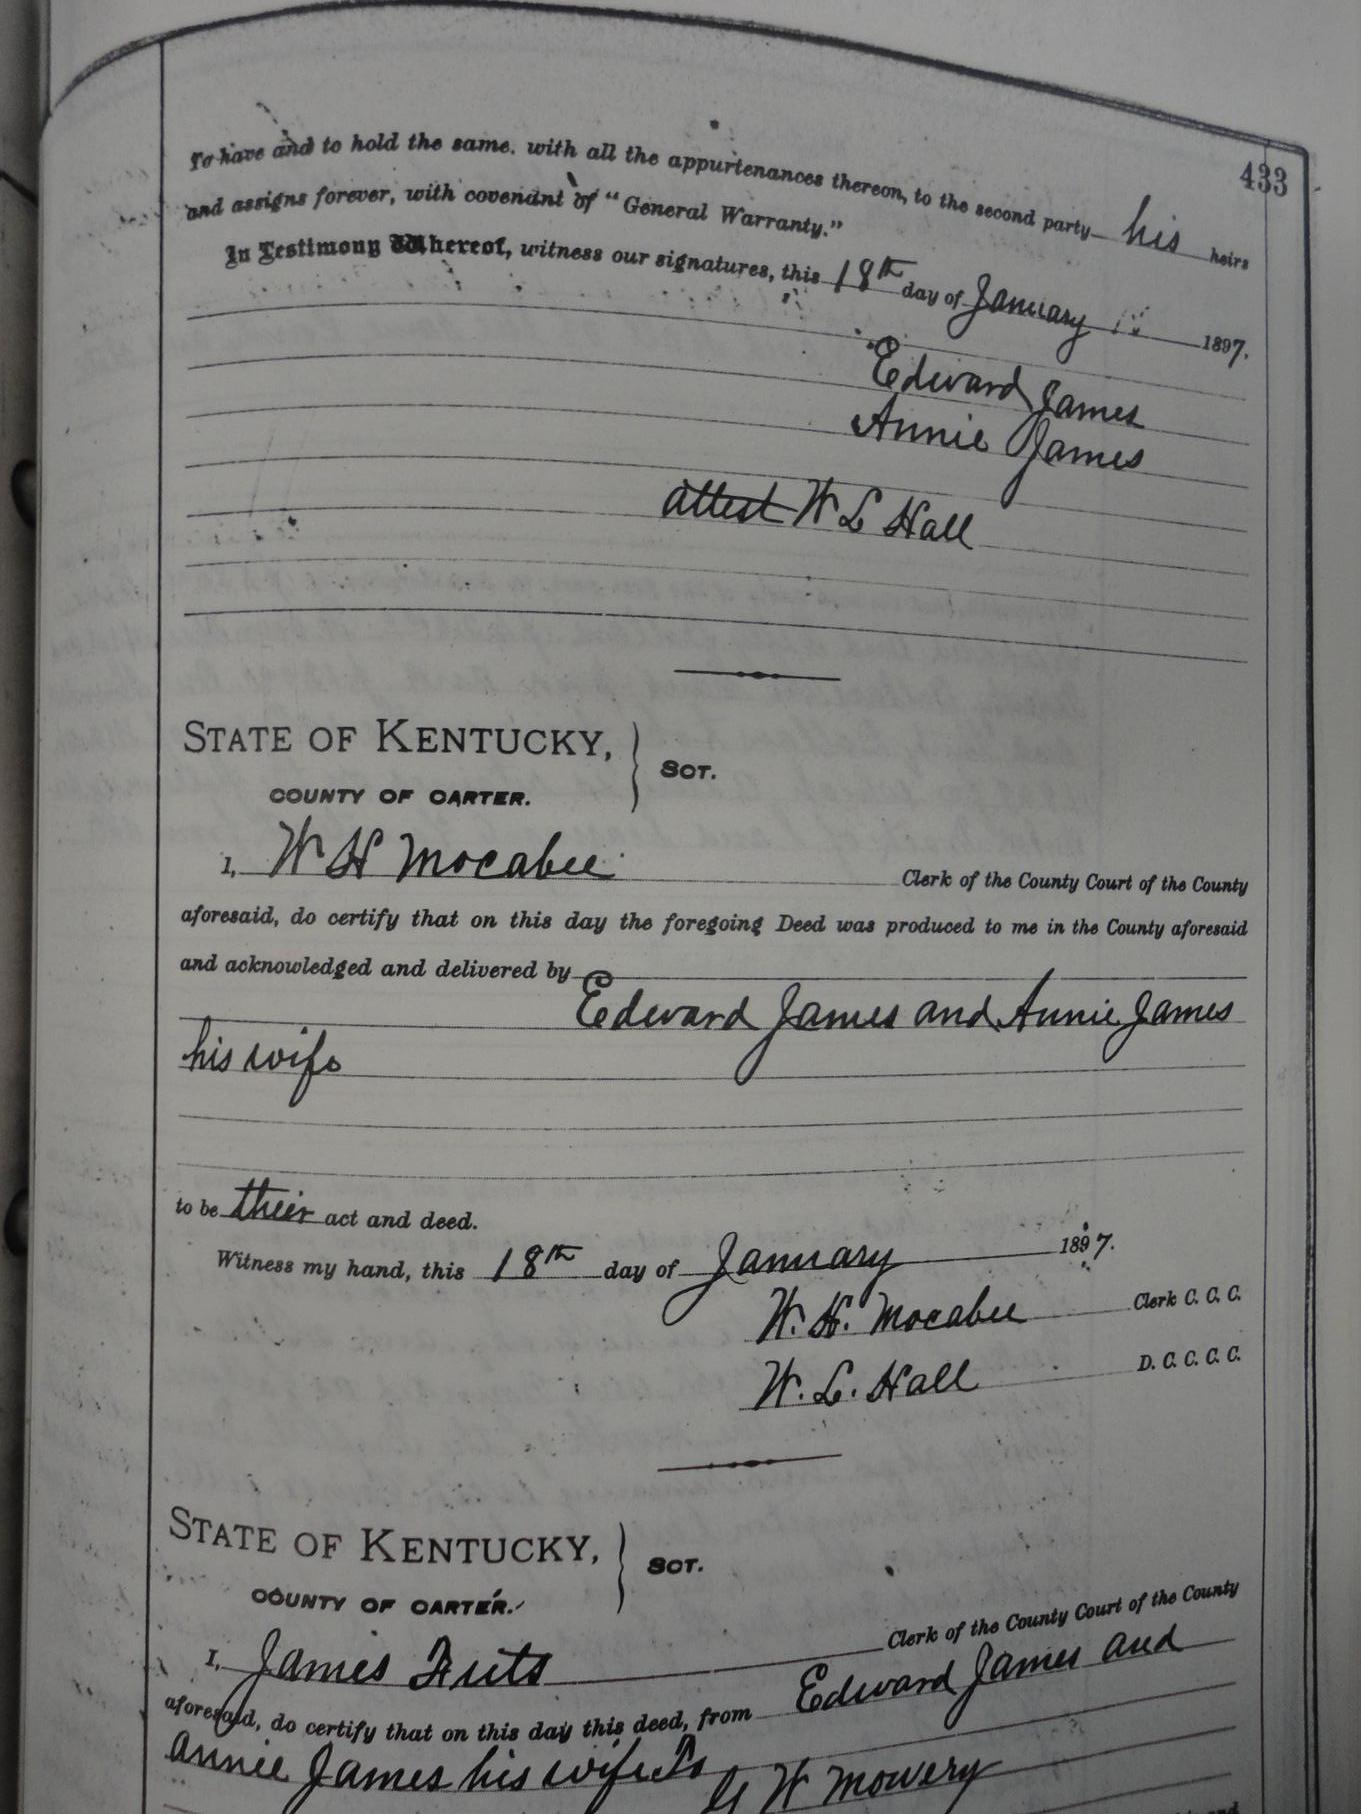 433
To have and to hold the same. with all the appurtenances thereon, to the second party his heirs
and assigns forever, with covenant of "General Warranty."
In Testimony Whereof, witness our signatures, this 18th day of January 1897.
Edward James
Annie James
attest W L Hall
STATE OF KENTUCKY,
COUNTY OF CARTER.
SCT.
I, W H Mocabee Clerk of the County Court of the County
aforesaid, do certify that on this day the foregoing Deed was produced to me in the County aforesaid
and acknowledged and delivered by
Edward James and Annie James
his wife
to be their act and deed.
Witness my hand, this 18th day of January 1897.
W. H. Mocabee Clerk C. C. C.
W. L. Hall D. C. C. C. C.
STATE OF KENTUCKY,
COUNTY OF CARTER.
SCT.
I, James Fults Clerk of the County Court of the County
aforesaid, do certify that on this day this deed, from Edward James and
Annie James his wife To G W Mowery